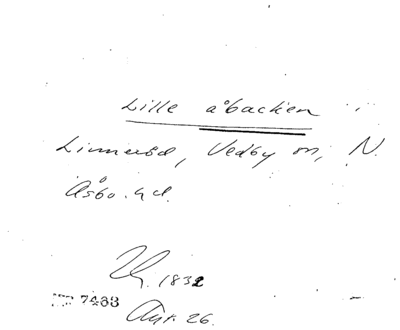 Lille åbacken
Linneröd, Vedby sn, N.
Åsbo hd.
1832
7433
Ant. 26.